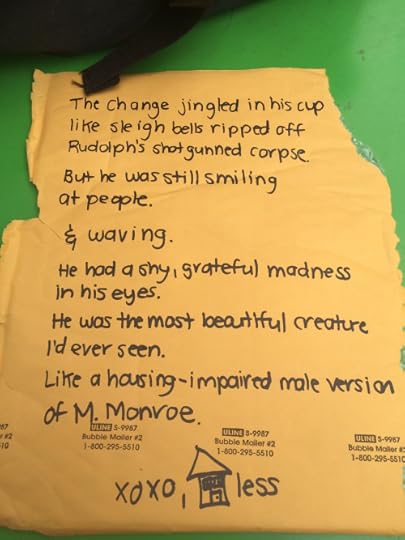 The change jingled in his cup
like sleigh bells ripped off
Rudolph's shotgunned corpse.
But he was still smiling
at people.
& waving.
He had a shy, grateful madness
in his eyes.
He was the most beautiful creature
I'd ever seen.
Like a housing-impaired male version
of M. Monroe.
87
#2
510
ULINE S-9987
Bubble Mailer #2
1-800-295-5510
ULINE S-9987
Bubble Mailer #2
1-800-295-5510
ULINE S-9987
Bubble Mailer #2
1-800-295-5510
xoxo, less